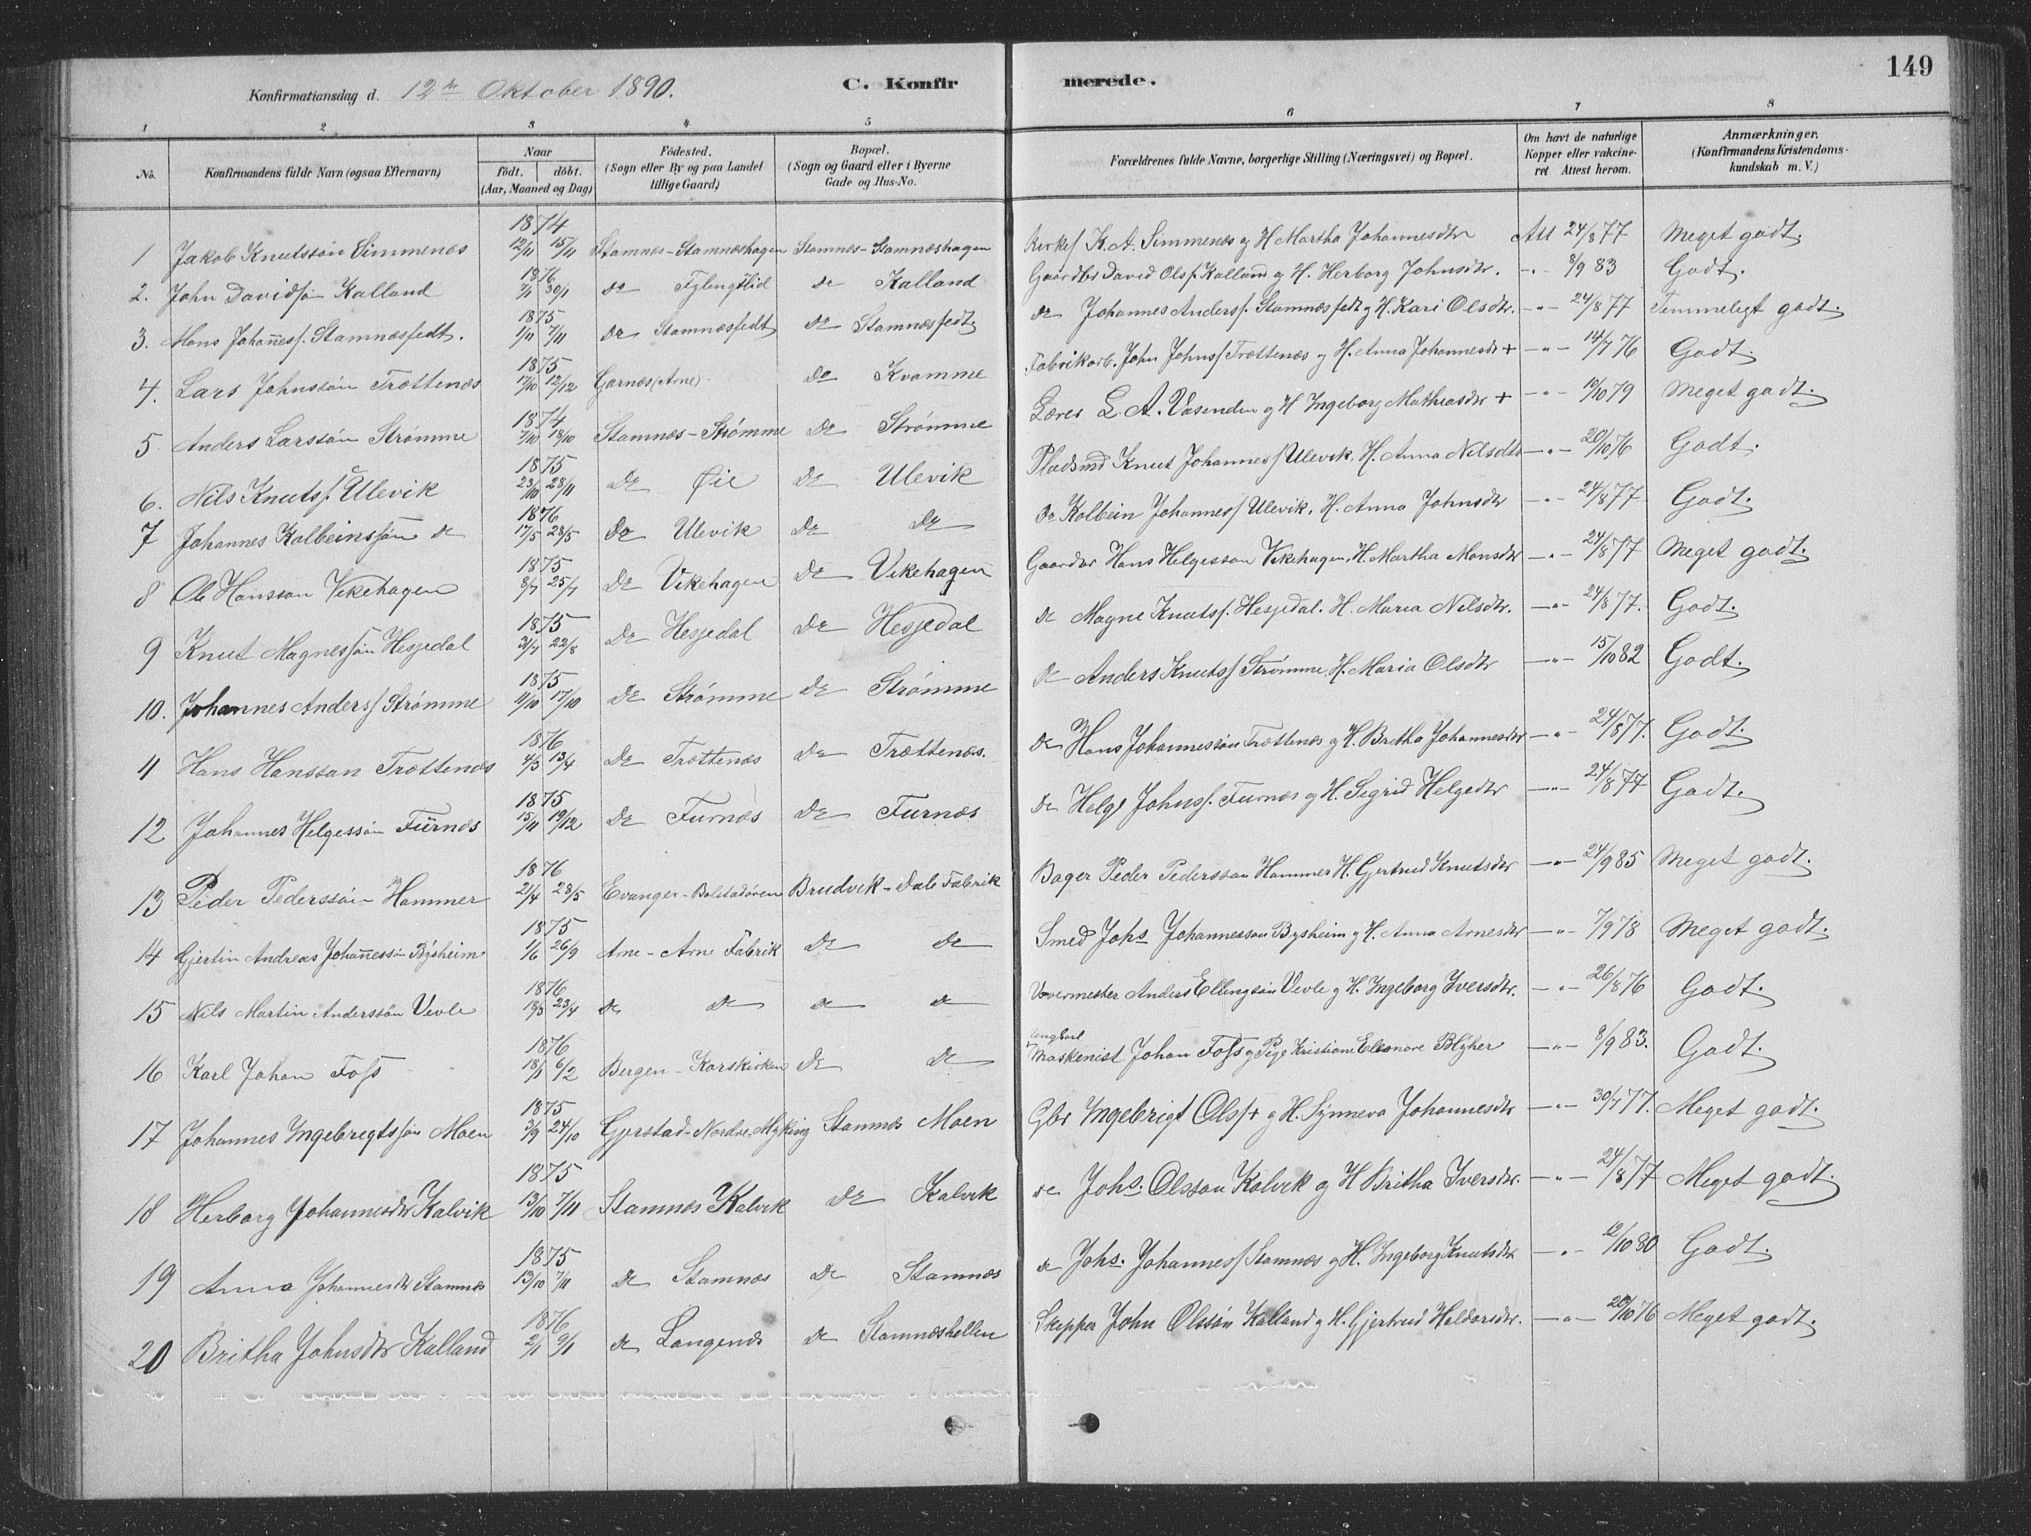 149
Konfirmationsdag d. 12te Oktober 1890. C. Konfirmerede.
1 2 3 4 5 6 7 8
No. Konfirmandens fulde Navn (ogsaa Efternavn) Naar födt. döbt. (Aar, Maaned og Dag) Födested. (Sogn eller By og paa Landet tillige Gaard) Bopæl. (Sogn og Gaard eller i Byerne Gade og Hus-No. Forældrenes fulde Navne, borgerlige Stilling (Næringsvei) og Bopæl. Om havt de naturlige Kopper eller vakcineret Attest herom. Anmærkninger. (Konfirmandens Kristendomskundskab m. V.)
1 Jakob Knutssøn Simmenæs 1874 12/11 15/11 Stamnæs-Stamnæshagen Stamnæs-Stamnæshagen Kirkes K. A. Simmenæs og H Martha Johannesdtr Att 24/8 77 Meget godt.
2. John Davidsøn Kalland 1876 7/1 30/1 do Fylingslid do Kalland Gaardbr David Olss. Kalland og H. Herborg Johnsdtr. -"- 8/9 83 Godt.
3. Mons Johanness. Stamnæsfedt. 1875 1/11 7/11 do Stamnæsfedt do Stamnæsfedt do Johannes Anderss. Stamnæsfedt og H. Kari Olsdtr. -"- 24/8 77 Temmeligt godt.
4. Lars Johnssøn Trættenæs 1875 17/10 12/12 Garnæs (Arne) do Kvamme Fabrikarb. John Johnss. Trættenæs og H. Anna Johannesdtr + -"- 14/7 76 Godt.
5 Anders Larssøn Strømme 1874 7/10 18/10 Stamnæs-Strømme do Strømme Lærer L. A. Vasenden og H Ingeborg Mathiasdtr + -"- 10/10 79 Meget godt.
6. Nils Knutss. Ulevik 1875 23/10 28/11 do Øie do Ulevik Pladsmd Knut Johanness. Ulevik, H. Anna Nilsdtr -"- 20/10 76 Godt.
7 Johannes Kolbeinssøn do 1876 17/5 28/5 do Ulevik do do do Kolbein Johanness. Ulevik, H. Anna Johnsdtr -"- 24/8 77 Godt.
8 Ole Hanssøn Vikehagen 1875 8/7 25/7 do Vikehagen do Vikehagen Gaardbr Hans Helgesson Vikehagen, H. Martha Monsdtr -"- 24/8 77 Meget godt.
9 Knut Magnessøn Hesjedal 1875 31/7 22/8 do Hesjedal do Hesjedal do Magne Knutss. Hesjedal. H. Maria Nilsdtr. -"- 24/8 77. Godt.
10. Johannes Anderss. Strømme 1875 11/10 17/10 do Strømme do Strømme do Anders Knutss. Strømme, H. Maria Olsdtr -"- 15/10 82 Godt.
11 Hans Hanssøn Trættenæs 1876 4/3 13/4 do Trættenæs do Trættenæs. do Hans Johannessøn Trættenæs og H. Britha Johannesdtr -"- 24/8 77. Godt.
12 Johannes Helgessøn Furnæs 1875 15/11 19/12 do Furnæs do Furnæs do Helge Johnss. Furnæs og H. Sigrid Helgedtr -"- 24/8 77 Godt.
13 Peder Pederssøn Hammer 1876 21/4 28/5 Evanger-Bolstadøren Brudvik-Dale Fabrik Bager Peder Pedersson Hammer H. Gjertrud Knutsdtr -"- 24/9 85 Meget godt.
14 Gjertin Andreas Johannessøn Bysheim 1875 1/6 26/9 Arne-Arne Fabrik do do Smed Johs Johannesson Bysheim og H. Anna Arnesdtr -"- 7/9 78 Meget godt.
15 Nils Martin Anderssøn Vevle 1876 18/3 23/4 do do do do Vævermester Anders Ellingsøn Vevle og H. Ingeborg Iversdtr. -"- 26/8 76 Godt.
16 Karl Johan Foss 1876 18/1 6/2 Bergen-Korskirken do do Ungkarl Maskenist Johan Foss og Pige Kristiane Eleonore Blyher -"- 8/9 83. Godt.
17 Johannes Ingebrigtssøn Moen 1875 3/9 24/10 Gjerstad-Nordre Myking Stamnæs Moen Gbr Ingebrigt Olss + og H. Synneva Johannesdtr -"- 30/7 77. Meget godt.
18 Herborg Johannesdtr Kalvik 1875 13/10 7/11 Stamnæs Kalvik do Kalvik do Johs. Olsson Kalvik og H Britha Iversdtr. -"- 24/8 77 Meget godt.
19 Anna Johannesdtr Stamnæs 1875 13/10 7/11 do Stamnæs do Stamnæs do Johs. Johanness. Stamnæs og H. Ingeborg Knutsdtr -"- 12/10 80 Godt.
20 Britha Johnsdtr Kalland 1876 2/1 9/1 do Langenæs do Stamnæshellen Skipper John Olssøn Kalland og H. Gjertrud Haldorsdtr. -"- 20/10 76 Meget godt.